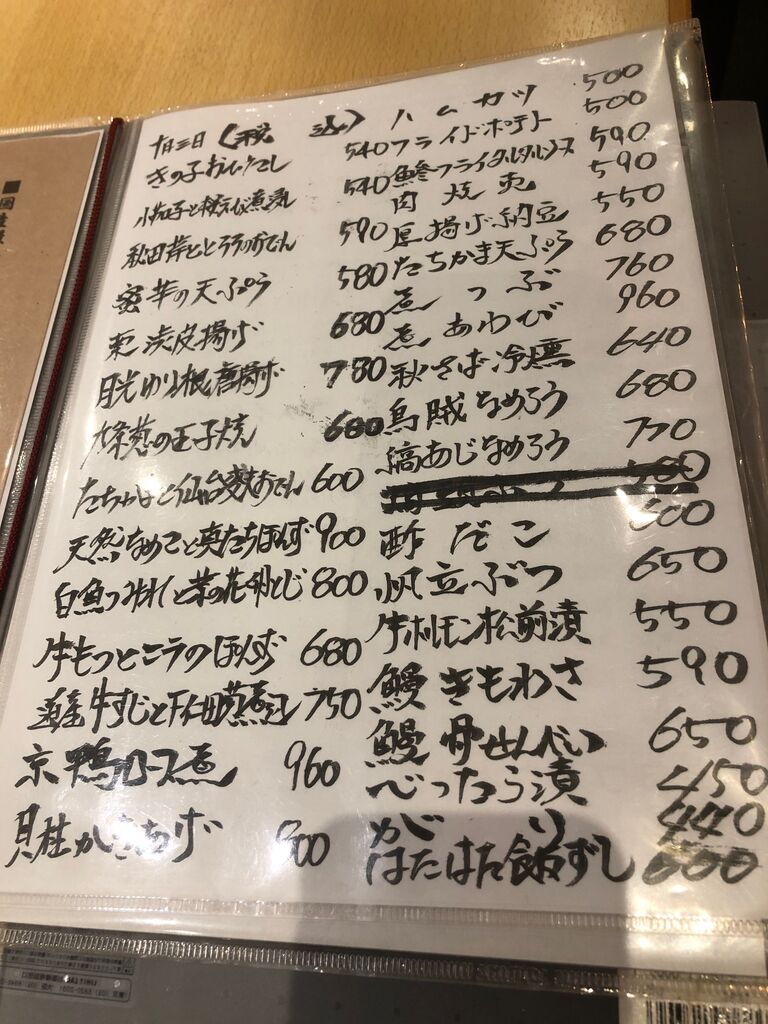 十日三日 (税込)
きの子おひたし 540
小茄子と桜えび煮 540
秋田芹ととろろのおでん 590
蜜芋の天ぷら 580
栗渋皮揚げ 680
月光ゆり根唐揚げ 780
九条葱の玉子焼 680
たちかまと仙台麩おでん 600
天然なめこと真たちぽんず 900
白魚つみれと菜の花卵とじ 800
牛もつとこうのぽんず 680
道産牛すじと下仁田葱煮込 750
京鴨ロース煮 960
貝柱かきあげ 800
ハムカツ 500
フライドポテト 500
鯵フライタルタルソース 590
肉焼売 590
厚揚げ納豆 550
たちかま天ぷら 680
煮つぶ 760
煮あわび 960
秋さば冷燻 640
烏賊なめろう 680
縞あじなめろう 770
酢だこ 500
帆立ぶつ 650
牛ホルモン松前漬 550
鰻きもわさ 590
鰻骨せんべい 650
べったら漬 450
がり 440
はたはた飯ずし 600